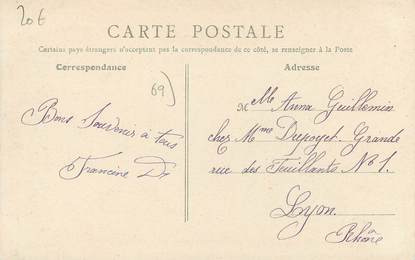 20€
CARTE POSTALE
Certains pays étrangers n'acceptant pas la correspondance de ce côté, se renseigner à la Poste
Correspondance
Adresse
69)
Bons Souvenir à tous
Francine
Melle Anna Guillemin
chez Mme Grande
rue des Feuillants No 1.
Lyon.
Rhône